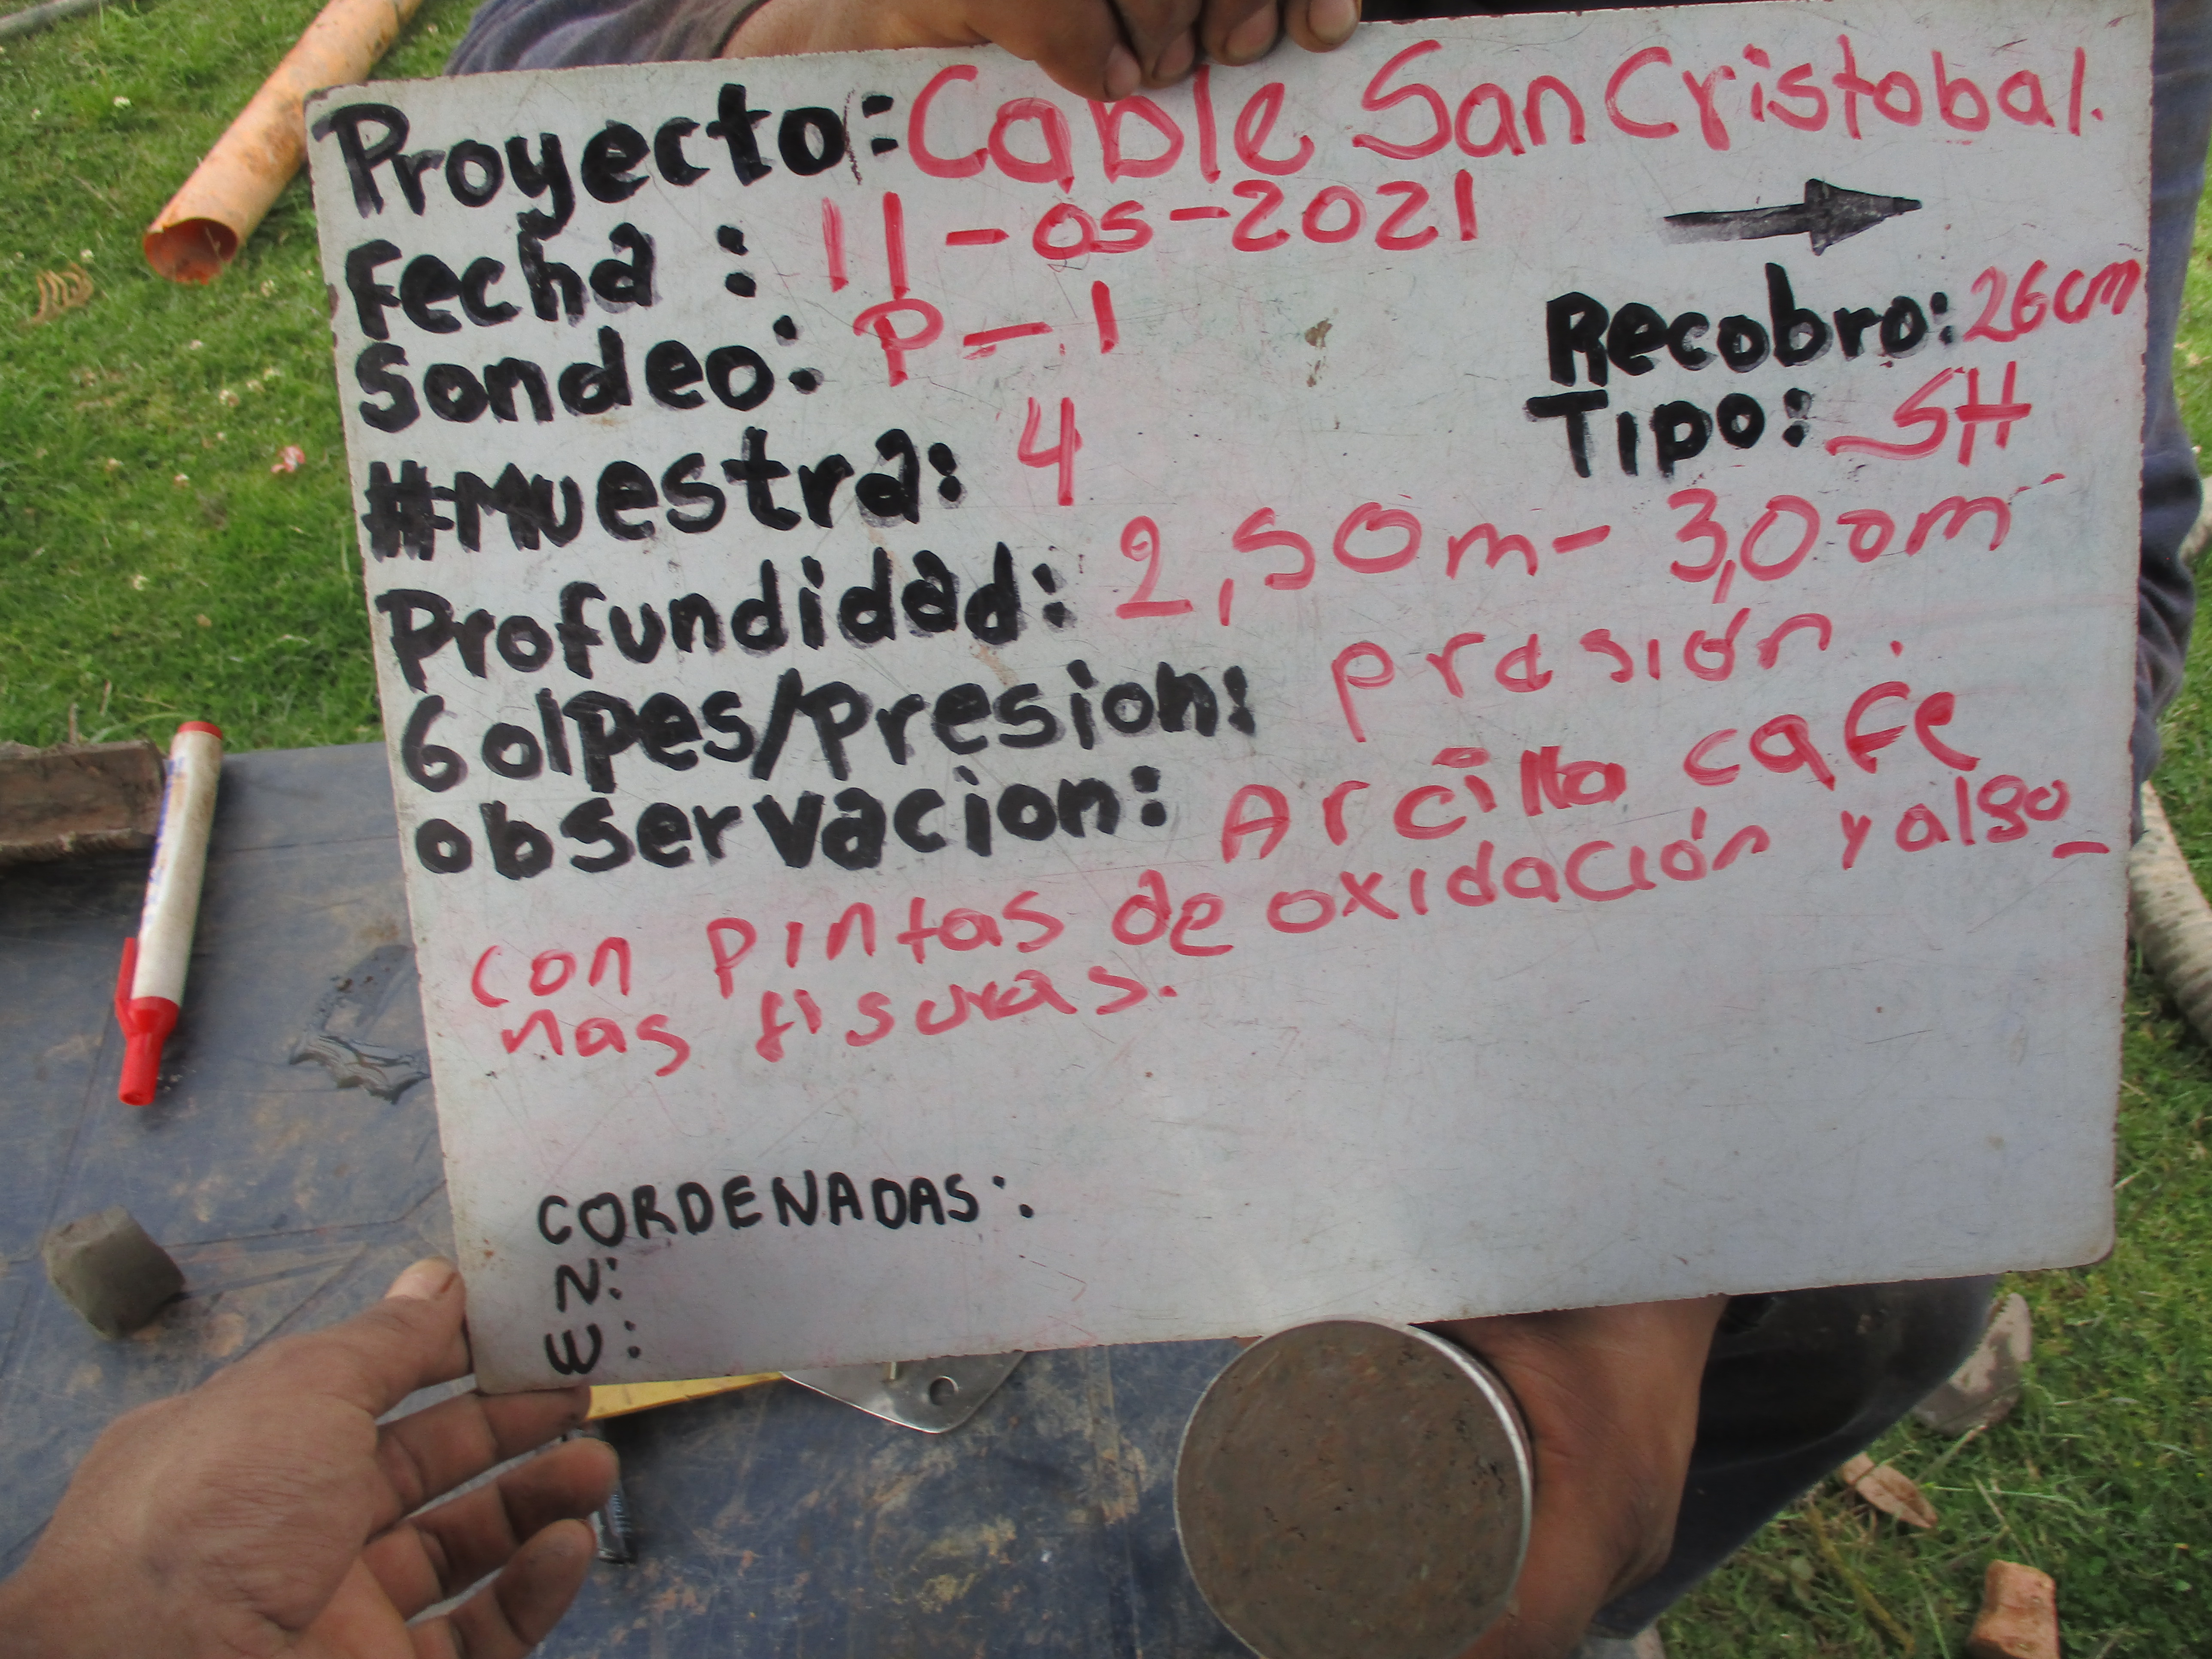 Proyecto: Cable San Cristobal.
Fecha : 11-05-2021
Sondeo: P-1
Recobro: 26cm
#Muestra: 4
Tipo: SH
Profundidad: 2,50m - 3,00m
Golpes/Presion: presión.
observacion: Arcilla cafe
con pintas de oxidación y algu_
nas fisuras.
CORDENADAS:
N:
W: